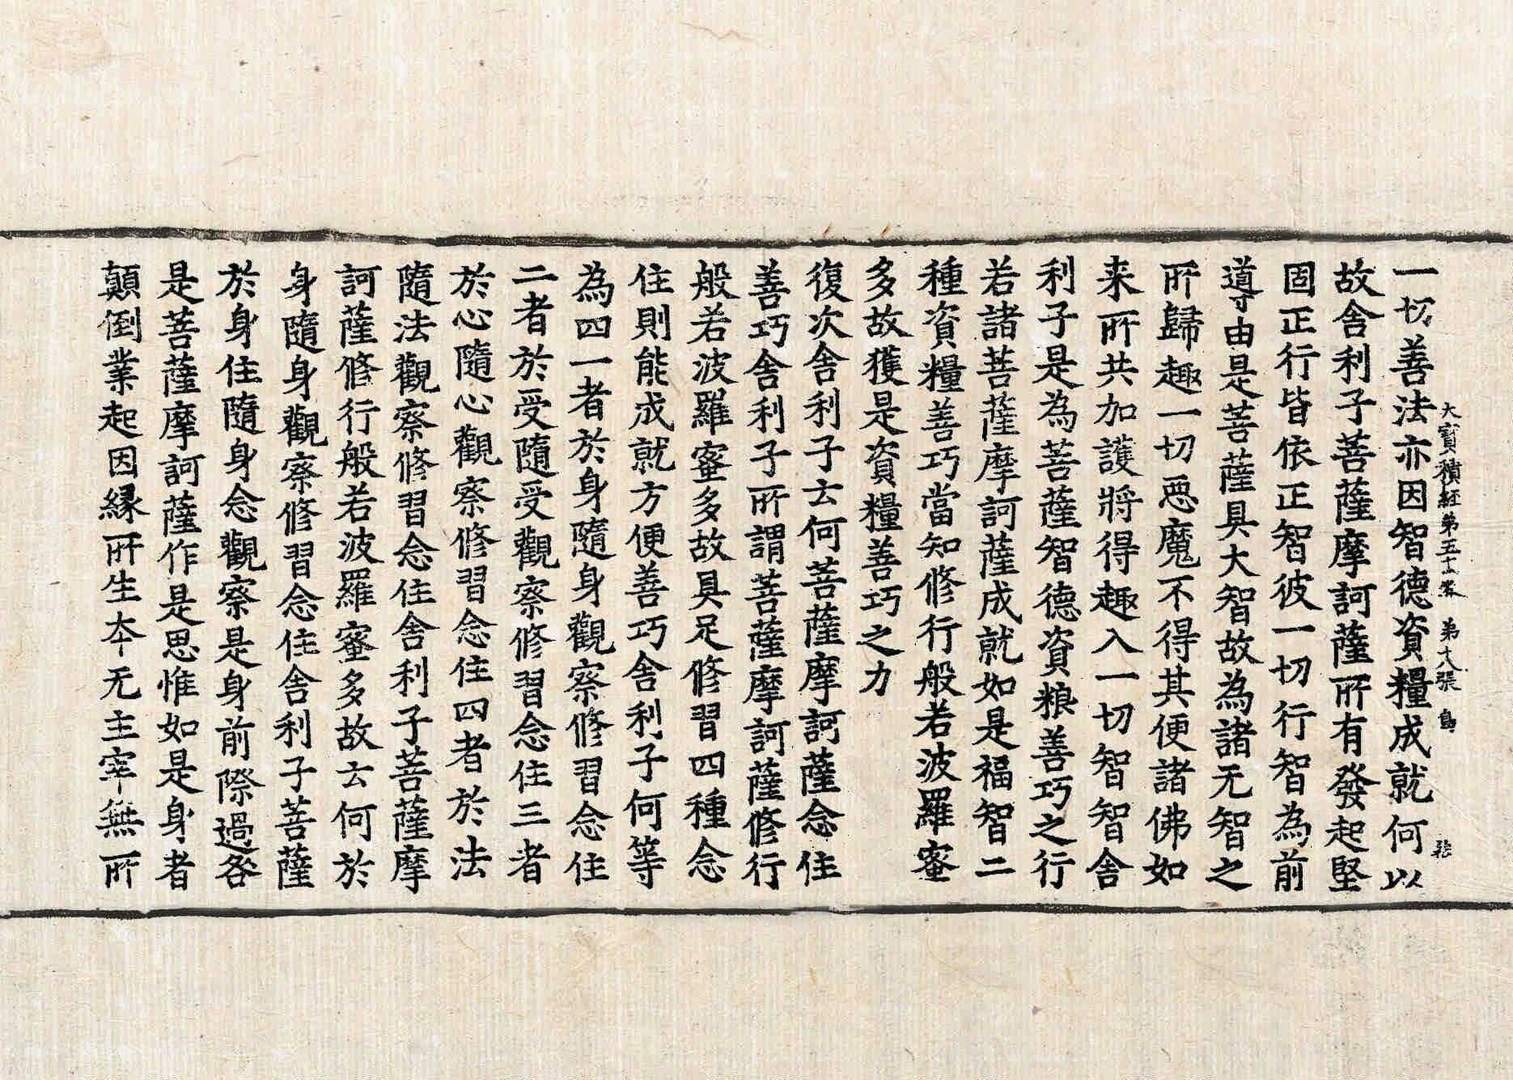 大寶積經第五十三卷 第十八張 鳥
一切善法亦因智德資糧成就何以
故舍利子菩薩摩訶薩所有發起堅
固正行皆依正智彼一切行智為前
導由是菩薩具大智故為諸无智之
所歸趣一切惡魔不得其便諸佛如
来所共加護將得趣入一切智智舍
利子是為菩薩智德資粮善巧之行
若諸菩薩摩訶薩成就如是福智二
種資糧善巧當知修行般若波羅蜜
多故獲是資糧善巧之力
復次舍利子云何菩薩摩訶薩念住
善巧舍利子所謂菩薩摩訶薩修行
般若波羅蜜多故具足修習四種念
住則能成就方便善巧舍利子何等
為四一者於身隨身觀察修習念住
二者於受隨受觀察修習念住三者
於心隨心觀察修習念住四者於法
隨法觀察修習念住舍利子菩薩摩
訶薩修行般若波羅蜜多故云何於
身隨身觀察修習念住舍利子菩薩
於身住隨身念觀察是身前際過咎
是菩薩摩訶薩作是思惟如是身者
顛倒業起因縁所生本无主宰無所